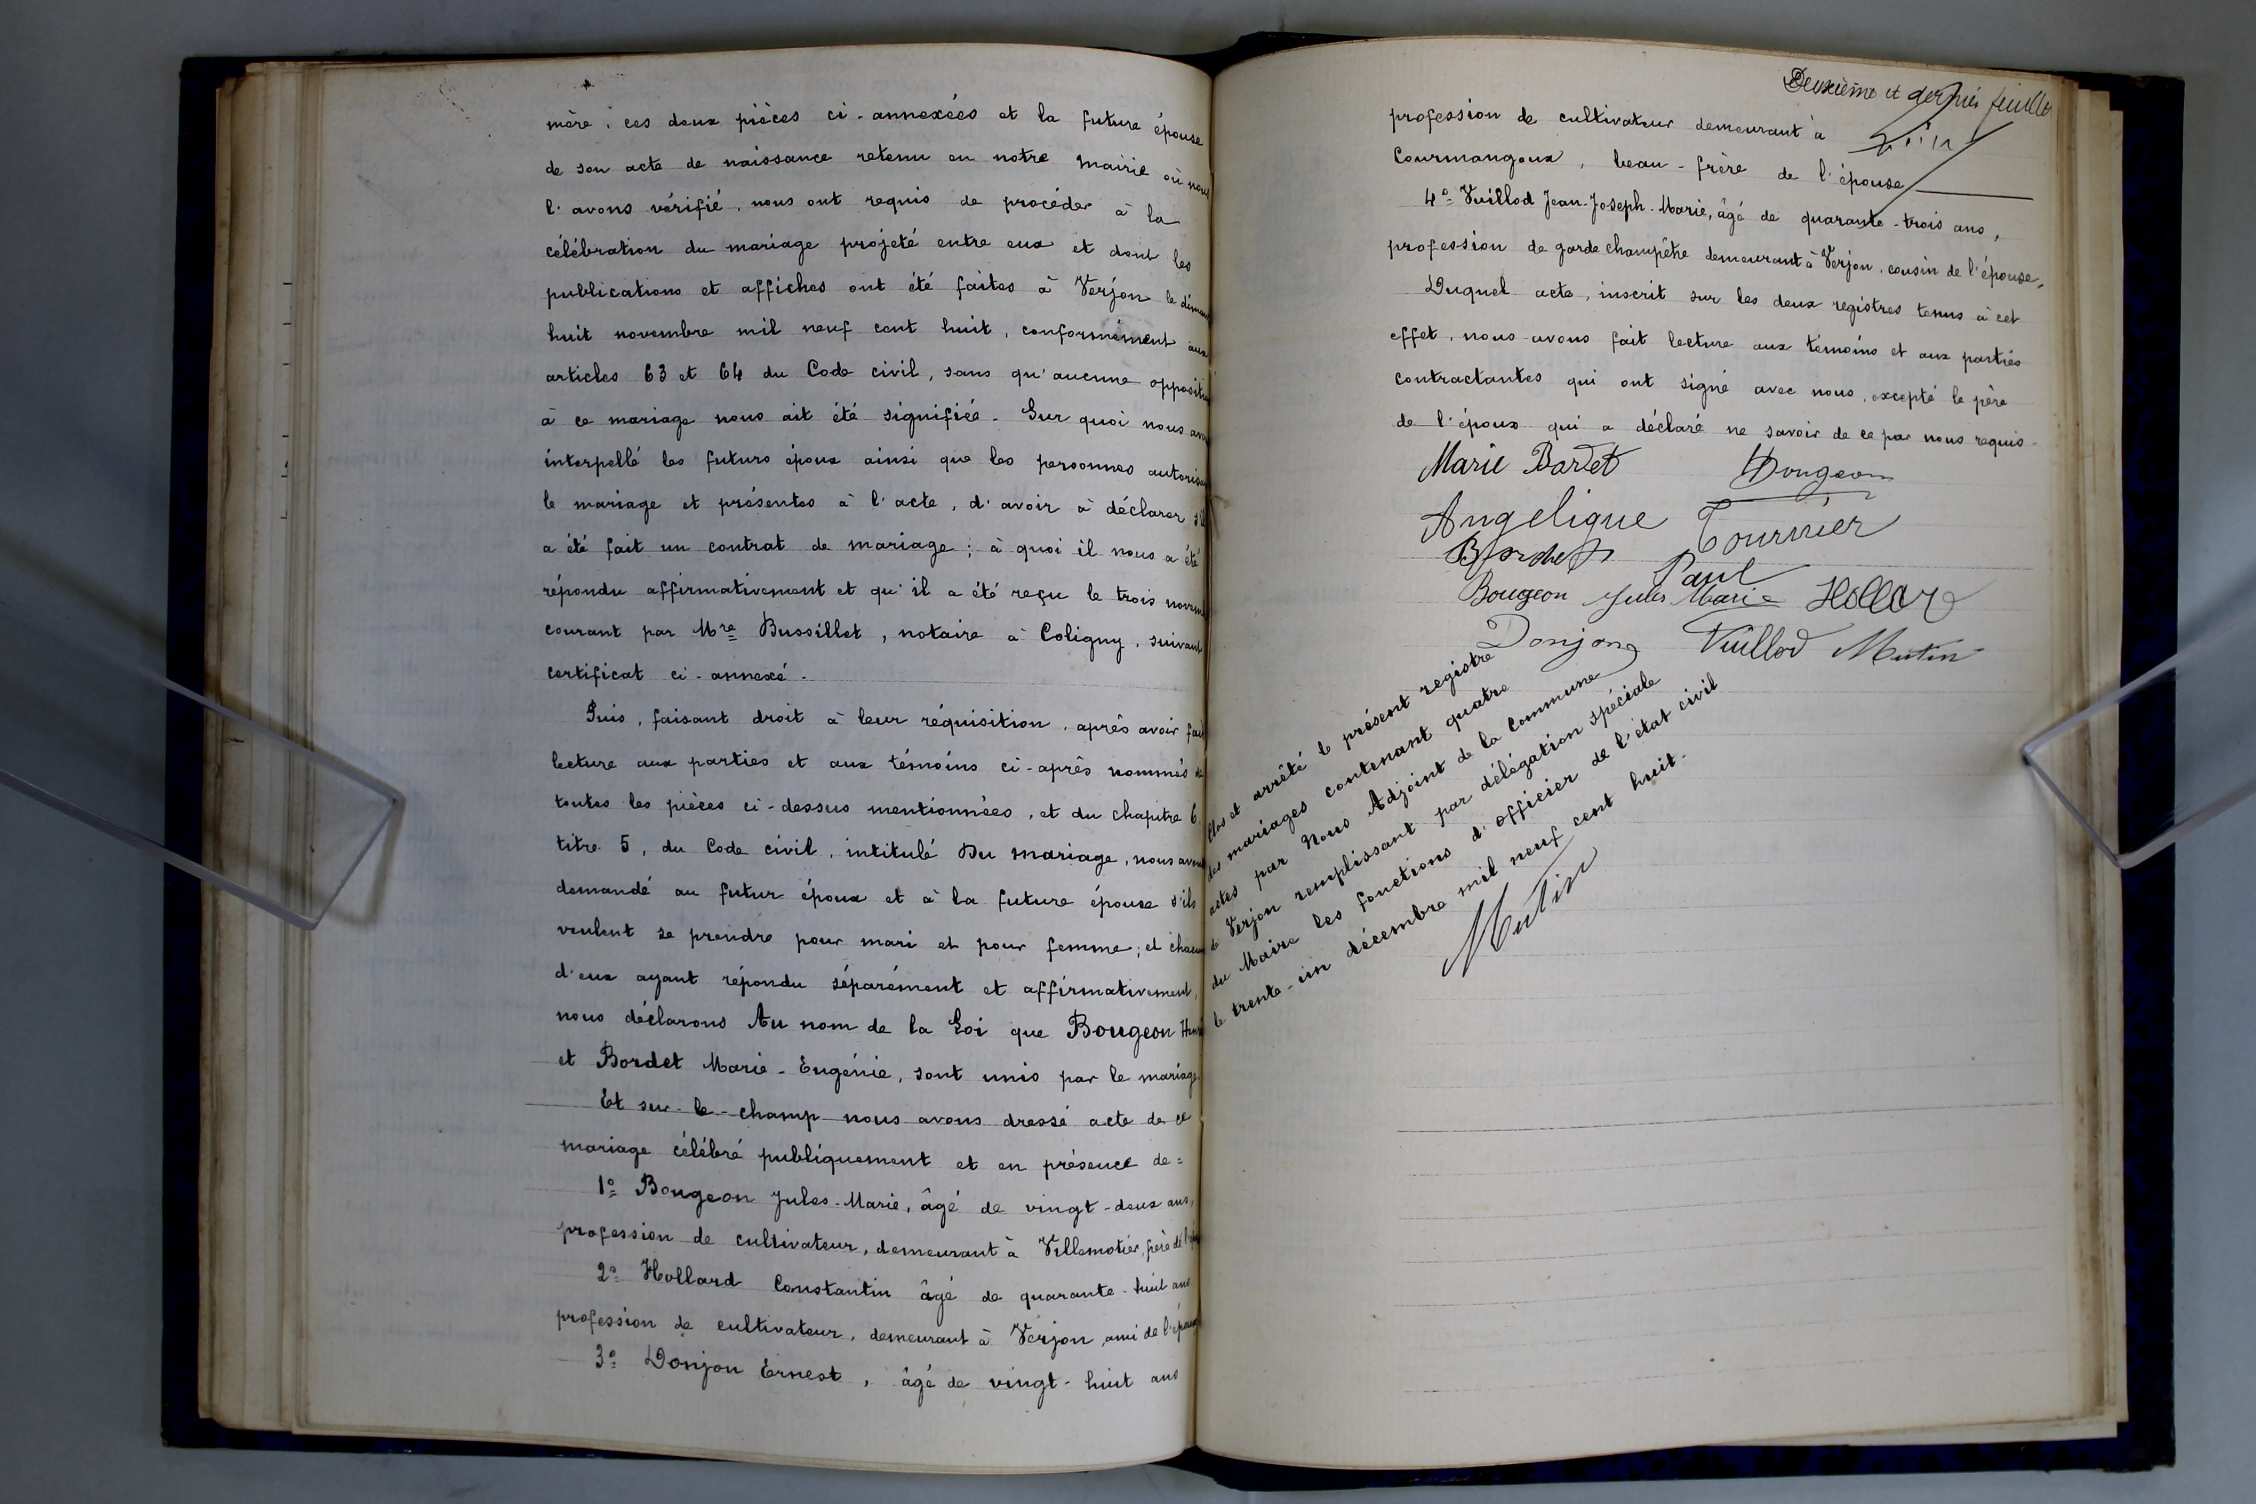 mère, ces deux pièces ci-annexées et la future épouse
de son acte de naissance retenu en notre mairie où nous
l'avons vérifié, nous ont requis de procéder à la
célébration du mariage projeté entre eux et dont les
publications et affiches ont été faites à Verjon le
huit novembre mil neuf cent huit, conformément aux
articles 63 et 64 du Code civil, sans qu'aucune
à ce mariage nous ait été signifiée. Sur quoi nous
interpellé les futurs époux ainsi que les personnes
le mariage et présentes à l'acte, d'avoir à déclarer s'il
a été fait un contrat de mariage ; à quoi il nous a été
répondu affirmativement et qu'il a été reçu le trois
courant par Mre Bussillet, notaire à Coligny, suivant
certificat ci-annexé.
Puis, faisant droit à leur réquisition, après avoir fait
lecture aux parties et aux témoins ci-après nommés de
toutes les pièces ci-dessus mentionnées, et du chapitre 6
titre 5, du Code civil, intitulé Du mariage, nous avons
demandé au futur époux et à la future épouse s'ils
veulent se prendre pour mari et pour femme ; et chacun
d'eux ayant répondu séparément et affirmativement,
nous déclarons Au nom de la Loi que Bougeon Henri
et Bordet Marie-Eugénie, sont unis par le mariage.
Et sur-le-champ nous avons dressé acte de ce
mariage célébré publiquement et en présence de =
1º Bougeon Jules-Marie, âgé de vingt-deux ans,
profession de cultivateur, demeurant à Villemotier, frère de
2º Hollard Constantin âgé de quarante-huit ans
profession de cultivateur, demeurant à Verjon, ami de
3º Donjon Ernest, âgé de vingt-huit ans
Deuxième et dernier feuillet
profession de cultivateur demeurant à
Courmangoux, beau-frère de l'épouse
4º Vuillod Jean-Joseph-Marie, âgé de quarante-trois ans,
profession de garde champêtre demeurant à Verjon, cousin de l'épouse,
Duquel acte, inscrit sur les deux registres tenus à cet
effet, nous avons fait lecture aux témoins et aux parties
contractantes qui ont signé avec nous, excepté le père
de l'époux qui a déclaré ne savoir de ce par nous requis.
Marie Bordet HBougeon
Angelique Tournier
Bordet Paul
Bougeon Jules Marie Hollard
Donjon Vuillod Mutin
Clos et arrêté le présent registre
des mariages contenant quatre
actes par Nous Adjoint de la Commune
de Verjon remplissant par délégation spéciale
du Maire les fonctions d'officier de l'état civil
le trente-un décembre mil neuf cent huit.
Mutin